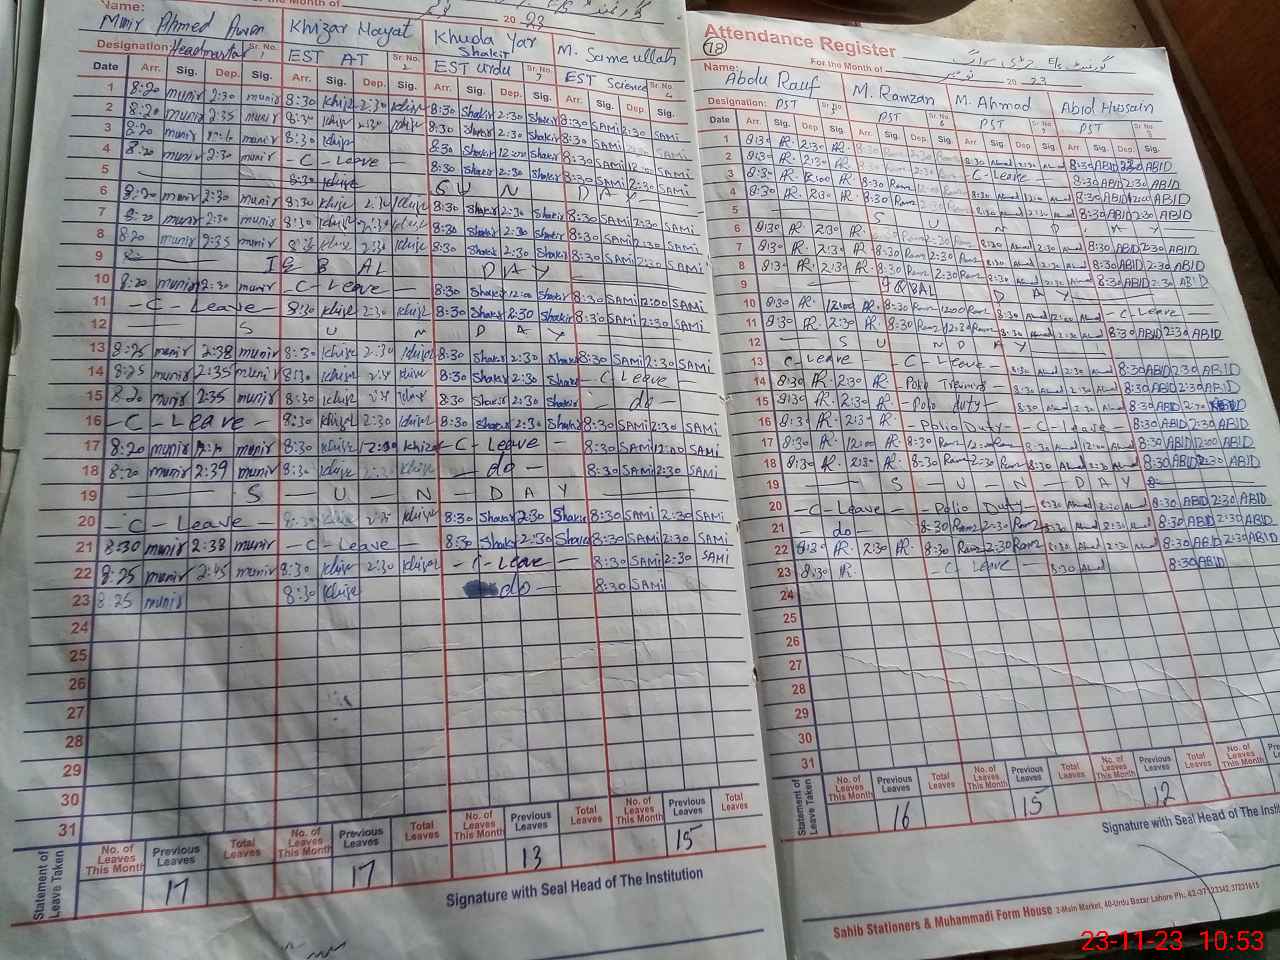 Name:
the Month of
20 23
Munir Ahmed Awan Khizar Hayat Khuda Yar Shakir M. Sameullah
Designation: Headmaster Sr. No. 1 EST AT Sr. No. 2 EST Urdu Sr. No. 3 EST Science Sr. No. 4
Date Arr. Sig. Dep. Sig. Arr. Sig. Dep. Sig. Arr. Sig. Dep. Sig. Arr. Sig. Dep. Sig.
1 8:20 munir 2:30 munir 8:30 khizr 2:30 khizr 8:30 Shakir 2:30 Shakir 8:30 SAMI 2:30 SAMI
2 8:20 munir 2:35 munir 8:30 khizr 2:30 khizr 8:30 Shakir 2:30 Shakir 8:30 SAMI 2:30 SAMI
3 8:20 munir munir 8:30 khizr 8:30 Shakir 12:00 Shakir 8:30 SAMI 12:00 SAMI
4 8:20 munir 2:30 munir - C - Leave - 8:30 Shakir 2:30 Shakir 8:30 SAMI 2:30 SAMI
5 S U N D A Y
6 8:20 munir 2:30 munir 8:30 khizr 2:30 khizr 8:30 Shakir 2:30 Shakir 8:30 SAMI 2:30 SAMI
7 8:20 munir 2:30 munir 8:30 khizr 2:30 khizr 8:30 Shakir 2:30 Shakir 8:30 SAMI 2:30 SAMI
8 8:20 munir 2:35 munir khizr 2:30 khizr 8:30 Shakir 2:30 Shakir 8:30 SAMI 2:30 SAMI
9 IQBAL DAY
10 8:20 munir 2:30 munir - C - Leave - 8:30 Shakir 12:00 Shakir 8:30 SAMI 12:00 SAMI
11 - C - Leave - 8:30 khizr 2:30 khizr 8:30 Shakir 2:30 Shakir 8:30 SAMI 2:30 SAMI
12 S U N D A Y
13 8:25 munir 2:38 munir 8:30 khizr 2:30 khizr 8:30 Shakir 2:30 Shakir 8:30 SAMI 2:30 SAMI
14 8:25 munir 2:35 munir 8:30 khizr khizr 8:30 Shakir 2:30 Shakir - C Leave -
15 8:20 munir 2:35 munir 8:30 khizr khizr 8:30 Shakir 2:30 Shakir - do -
16 - C - Leave - 8:30 khizr 2:30 khizr 8:30 Shakir 2:30 Shakir 8:30 SAMI 2:30 SAMI
17 8:20 munir munir 8:30 khizr khizr - C - Leave - 8:30 SAMI 12:00 SAMI
18 8:20 munir 2:39 munir 8:30 khizr khizr - do - 8:30 SAMI 2:30 SAMI
19 S - U - N - D A Y
20 - C - Leave - 8:30 khizr khizr 8:30 Shakir 2:30 Shakir 8:30 SAMI 2:30 SAMI
21 8:30 munir 2:38 munir - C - Leave - 8:30 Shakir 2:30 Shakir 8:30 SAMI 2:30 SAMI
22 8:25 munir 2:45 munir 8:30 khizr 2:30 khizr - C - Leave - 8:30 SAMI 2:30 SAMI
23 8:25 munir 8:30 khizr do - 8:30 SAMI
24
25
26
27
28
29
30
31
Statement of Leave Taken
No. of Leaves This Month Previous Leaves Total Leaves No. of Leaves This Month Previous Leaves Total Leaves No. of Leaves This Month Previous Leaves Total Leaves No. of Leaves This Month Previous Leaves Total Leaves
17 17 13 15
Signature with Seal Head of The Institution
Attendance Register
18
For the Month of نومبر 20 23
Name: Abdu Rauf M. Ramzan M. Ahmad Abid Hussain
Designation: PST Sr. No. PST Sr. No. 6 PST Sr. No. 7 PST Sr. No.
Date Arr. Sig. Dep. Sig. Arr. Sig. Dep. Sig. Arr. Sig. Dep. Sig. Arr. Sig. Dep. Sig.
1 8:30 AR. 2:30 AR. 8:30 2:30 8:30 Ahmad 2:30 Ahmad 8:30 ABID 2:30 ABID
2 8:30 AR. 2:30 AR. C - Leave 8:30 ABID 2:30 ABID
3 8:30 AR. 12:00 AR. 8:30 12:00 8:30 Ahmad 12:00 Ahmad 8:30 ABID 12:00 ABID
4 8:30 AR. 2:30 AR. 8:30 2:30 8:30 Ahmad 2:30 Ahmad 8:30 ABID 2:30 ABID
5 S U N D A Y
6 8:30 AR. 2:30 AR. 8:30 Ramz 2:30 Ramz 8:30 Ahmad 2:30 Ahmad 8:30 ABID 2:30 ABID
7 8:30 AR. 2:30 AR. 8:30 Ramz 2:30 Ramz 8:30 Ahmad 2:30 Ahmad 8:30 ABID 2:30 ABID
8 8:30 AR. 2:30 AR. 8:30 Ramz 2:30 Ramz 8:30 Ahmad 2:30 Ahmad 8:30 ABID 2:30 ABID
9 IQBAL D A Y
10 8:30 AR. 12:00 AR. 8:30 Ramz 12:00 Ramz 8:30 Ahmad 12:00 Ahmad - C Leave -
11 8:30 AR. 2:30 AR. 8:30 Ramz 2:30 Ramz 8:30 Ahmad 2:30 Ahmad 8:30 ABID 2:30 ABID
12 S U N D A Y
13 C - Leave - C - Leave - 8:30 ABID 2:30 ABID
14 8:30 AR. 2:30 AR. - Polio Training - 8:30 Ahmad 2:30 Ahmad 8:30 ABID 2:30 ABID
15 8:30 AR. 2:30 AR. - Polio duty - 8:30 Ahmad 2:30 Ahmad 8:30 ABID 2:30 ABID
16 8:30 AR. 2:30 AR. - Polio Duty - - C - leave - 8:30 ABID 2:30 ABID
17 8:30 AR. 12:00 AR. 8:30 Ramz 12:00 Ramz 8:30 Ahmad 12:00 Ahmad 8:30 ABID 12:00 ABID
18 8:30 AR. 2:30 AR. 8:30 Ramz 2:30 Ramz 8:30 Ahmad 2:30 Ahmad 8:30 ABID 2:30 ABID
19 S - U - N - D A Y
20 - C - Leave - - Polio Duty - 8:30 Ahmad 2:30 Ahmad 8:30 ABID 2:30 ABID
21 - do - 8:30 Ramz 2:30 Ramz 8:30 Ahmad 2:30 Ahmad 8:30 ABID 2:30 ABID
22 8:30 AR. 2:30 AR. 8:30 Ramz 2:30 Ramz 8:30 Ahmad 2:30 Ahmad 8:30 ABID 2:30 ABID
23 8:30 AR. - C Leave - 8:30 Ahmad 8:30 ABID
24
25
26
27
28
29
30
31
Statement of Leave Taken
No. of Leaves This Month Previous Leaves Total Leaves No. of Leaves This Month Previous Leaves Total Leaves No. of Leaves This Month Previous Leaves Total Leaves No. of Leaves This Month
16 15 12
Signature with Seal Head of The Insti
Sahib Stationers & Muhammadi Form House 2-Main Market, 40-Urdu Bazar Lahore Ph.
23-11-23 10:53